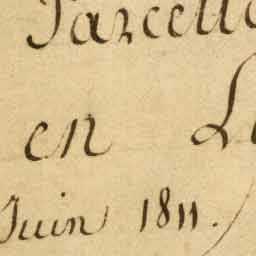 Parcell
en L
Juin 1811.)